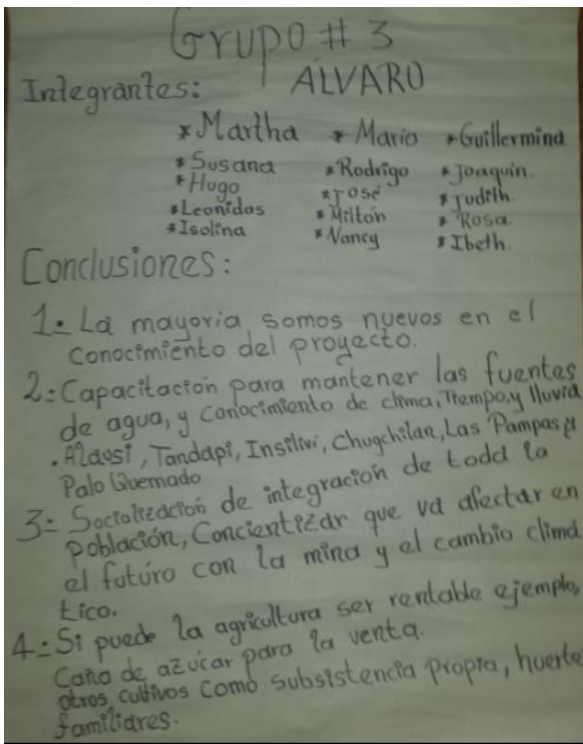 Grupo # 3
Integrantes: ALVARO
*Martha *Mario *Guillermina
*Susana *Rodrigo *Joaquín.
*Hugo *José *Judith.
*Leonidas *Miltón *Rosa
*Isolina *Nancy *Ibeth.
Conclusiones:
1.- La mayoria somos nuevos en el
conocimiento del proyecto.
2.- Capacitación para mantener las fuentes
de agua, y conocimiento de clima, Tiempo, y lluvia
. Alausi, Tandapi, Insilivi, Chugchilan, Las Pampas y
Palo Quemado
3.- Socialización de integración de toda la
población, Concientizar que va afectar en
el futúro con la mina y el cambio climá
tico.
4.- Si puede la agricultura ser rentable ejemplo,
Caña de azúcar para la venta.
otros cultivos como subsistencia propia, huerto
familiares.